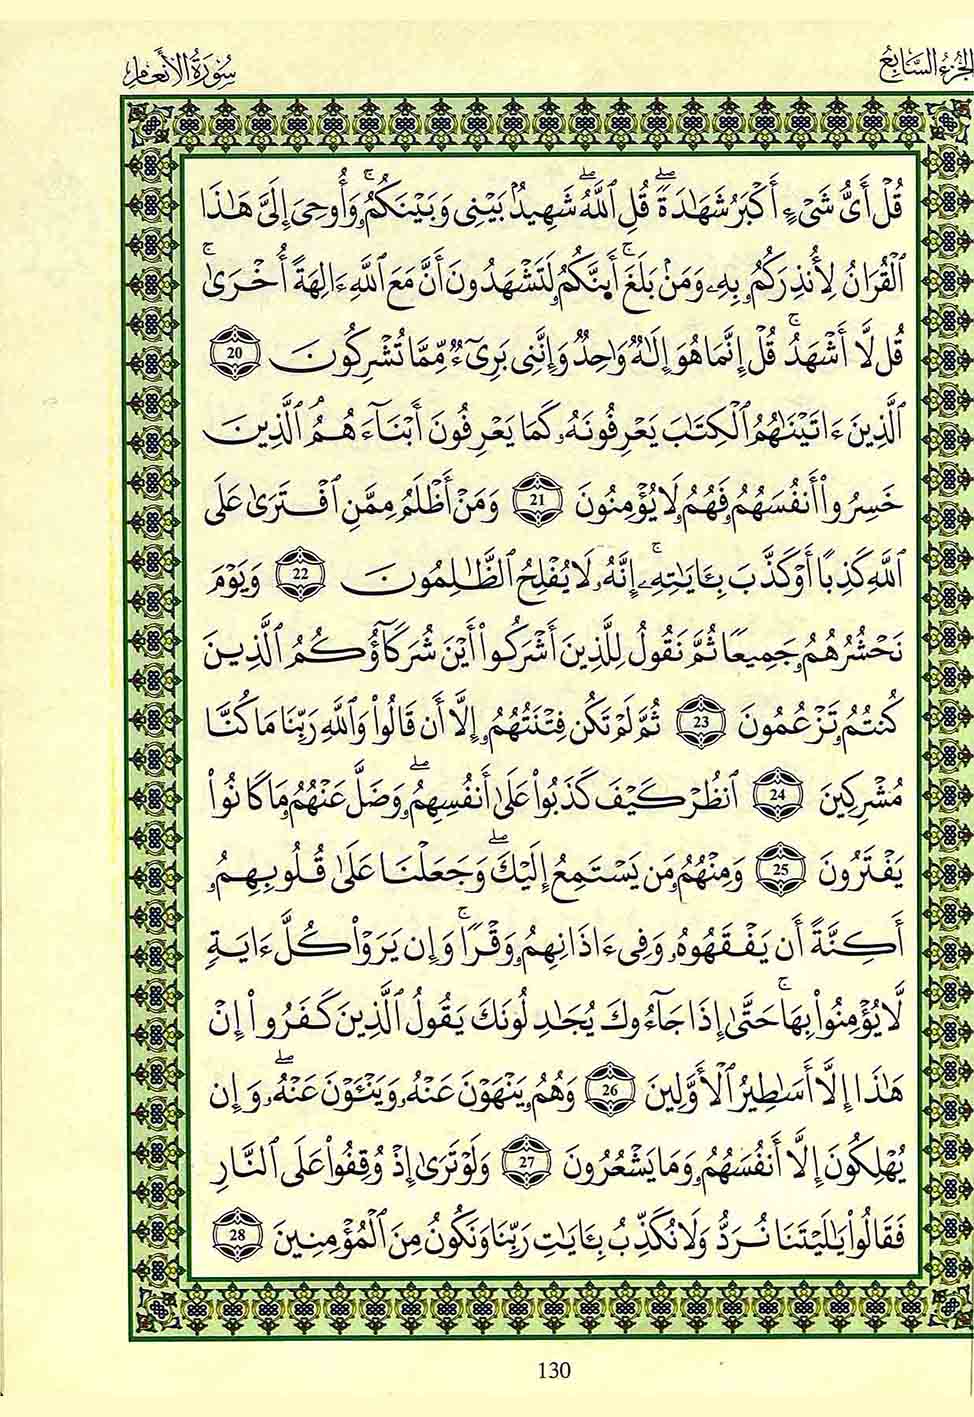 الجزء السابع
سورة الأنعام
قُلْ أَىُّ شَىْءٍ أَكْبَرُ شَهَٰدَةٗۖ قُلِ ٱللَّهُۖ شَهِيدُۢ بَيْنِى وَبَيْنَكُمُۥۚ وَأُوحِىَ إِلَىَّ هَٰذَا
ٱلْقُرَانُ لِأُنذِرَكُمُۥ بِهِۦ وَمَنۢ بَلَغَۚ أَينَّكُمُۥ لَتَشْهَدُونَ أَنَّ مَعَ ٱللَّهِ ءَالِهَةً أُخْرَىٰۚ
قُل لَّا أَشْهَدُۚ قُلْ إِنَّمَا هُوَ إِلَٰهٌ وَٰحِدٌ وَإِنَّنِى بَرِىٓءٌ مِّمَّا تُشْرِكُونَ 20
ٱلَّذِينَ ءَاتَيْنَٰهُمُ ٱلْكِتَٰبَ يَعْرِفُونَهُۥ كَمَا يَعْرِفُونَ أَبْنَآءَهُمُ ٱلَّذِينَ
خَسِرُوٓا۟ أَنفُسَهُمُۥ فَهُمُۥ لَا يُؤْمِنُونَ 21 وَمَنْ أَظْلَمُ مِمَّنِ ٱفْتَرَىٰ عَلَى
ٱللَّهِ كَذِبًا أَوْ كَذَّبَ بِـَٔايَٰتِهِۦۚ إِنَّهُۥ لَا يُفْلِحُ ٱلظَّٰلِمُونَ 22 وَيَوْمَ
نَحْشُرُهُمُۥ جَمِيعًا ثُمَّ نَقُولُ لِلَّذِينَ أَشْرَكُوا۟ أَيْنَ شُرَكَآؤُكُمُ ٱلَّذِينَ
كُنتُمُۥ تَزْعُمُونَ 23 ثُمَّ لَمْ تَكُن فِتْنَتُهُمُۥ إِلَّا أَن قَالُوا۟ وَٱللَّهِ رَبِّنَا مَا كُنَّا
مُشْرِكِينَ 24 ٱنظُرْ كَيْفَ كَذَبُوا۟ عَلَىٰ أَنفُسِهِمُۥۖ وَضَلَّ عَنْهُمُۥ مَا كَانُوا۟
يَفْتَرُونَ 25 وَمِنْهُمُۥ مَن يَسْتَمِعُ إِلَيْكَۖ وَجَعَلْنَا عَلَىٰ قُلُوبِهِمُۥ
أَكِنَّةً أَن يَفْقَهُوهُۥ وَفِى ءَاذَانِهِمُۥ وَقْرًاۚ وَإِن يَرَوْا۟ كُلَّ ءَايَةٍ
لَّا يُؤْمِنُوا۟ بِهَاۚ حَتَّىٰ إِذَا جَآءُوكَ يُجَٰدِلُونَكَ يَقُولُ ٱلَّذِينَ كَفَرُوا۟ إِنْ
هَٰذَا إِلَّا أَسَٰطِيرُ ٱلْأَوَّلِينَ 26 وَهُمُۥ يَنْهَوْنَ عَنْهُۥ وَيَنْـَٔوْنَ عَنْهُۥۖ وَإِن
يُهْلِكُونَ إِلَّا أَنفُسَهُمُۥ وَمَا يَشْعُرُونَ 27 وَلَوْ تَرَىٰ إِذْ وُقِفُوا۟ عَلَى ٱلنَّارِ
فَقَالُوا۟ يَٰلَيْتَنَا نُرَدُّ وَلَا نُكَذِّبُ بِـَٔايَٰتِ رَبِّنَا وَنَكُونُ مِنَ ٱلْمُؤْمِنِينَ 28
130